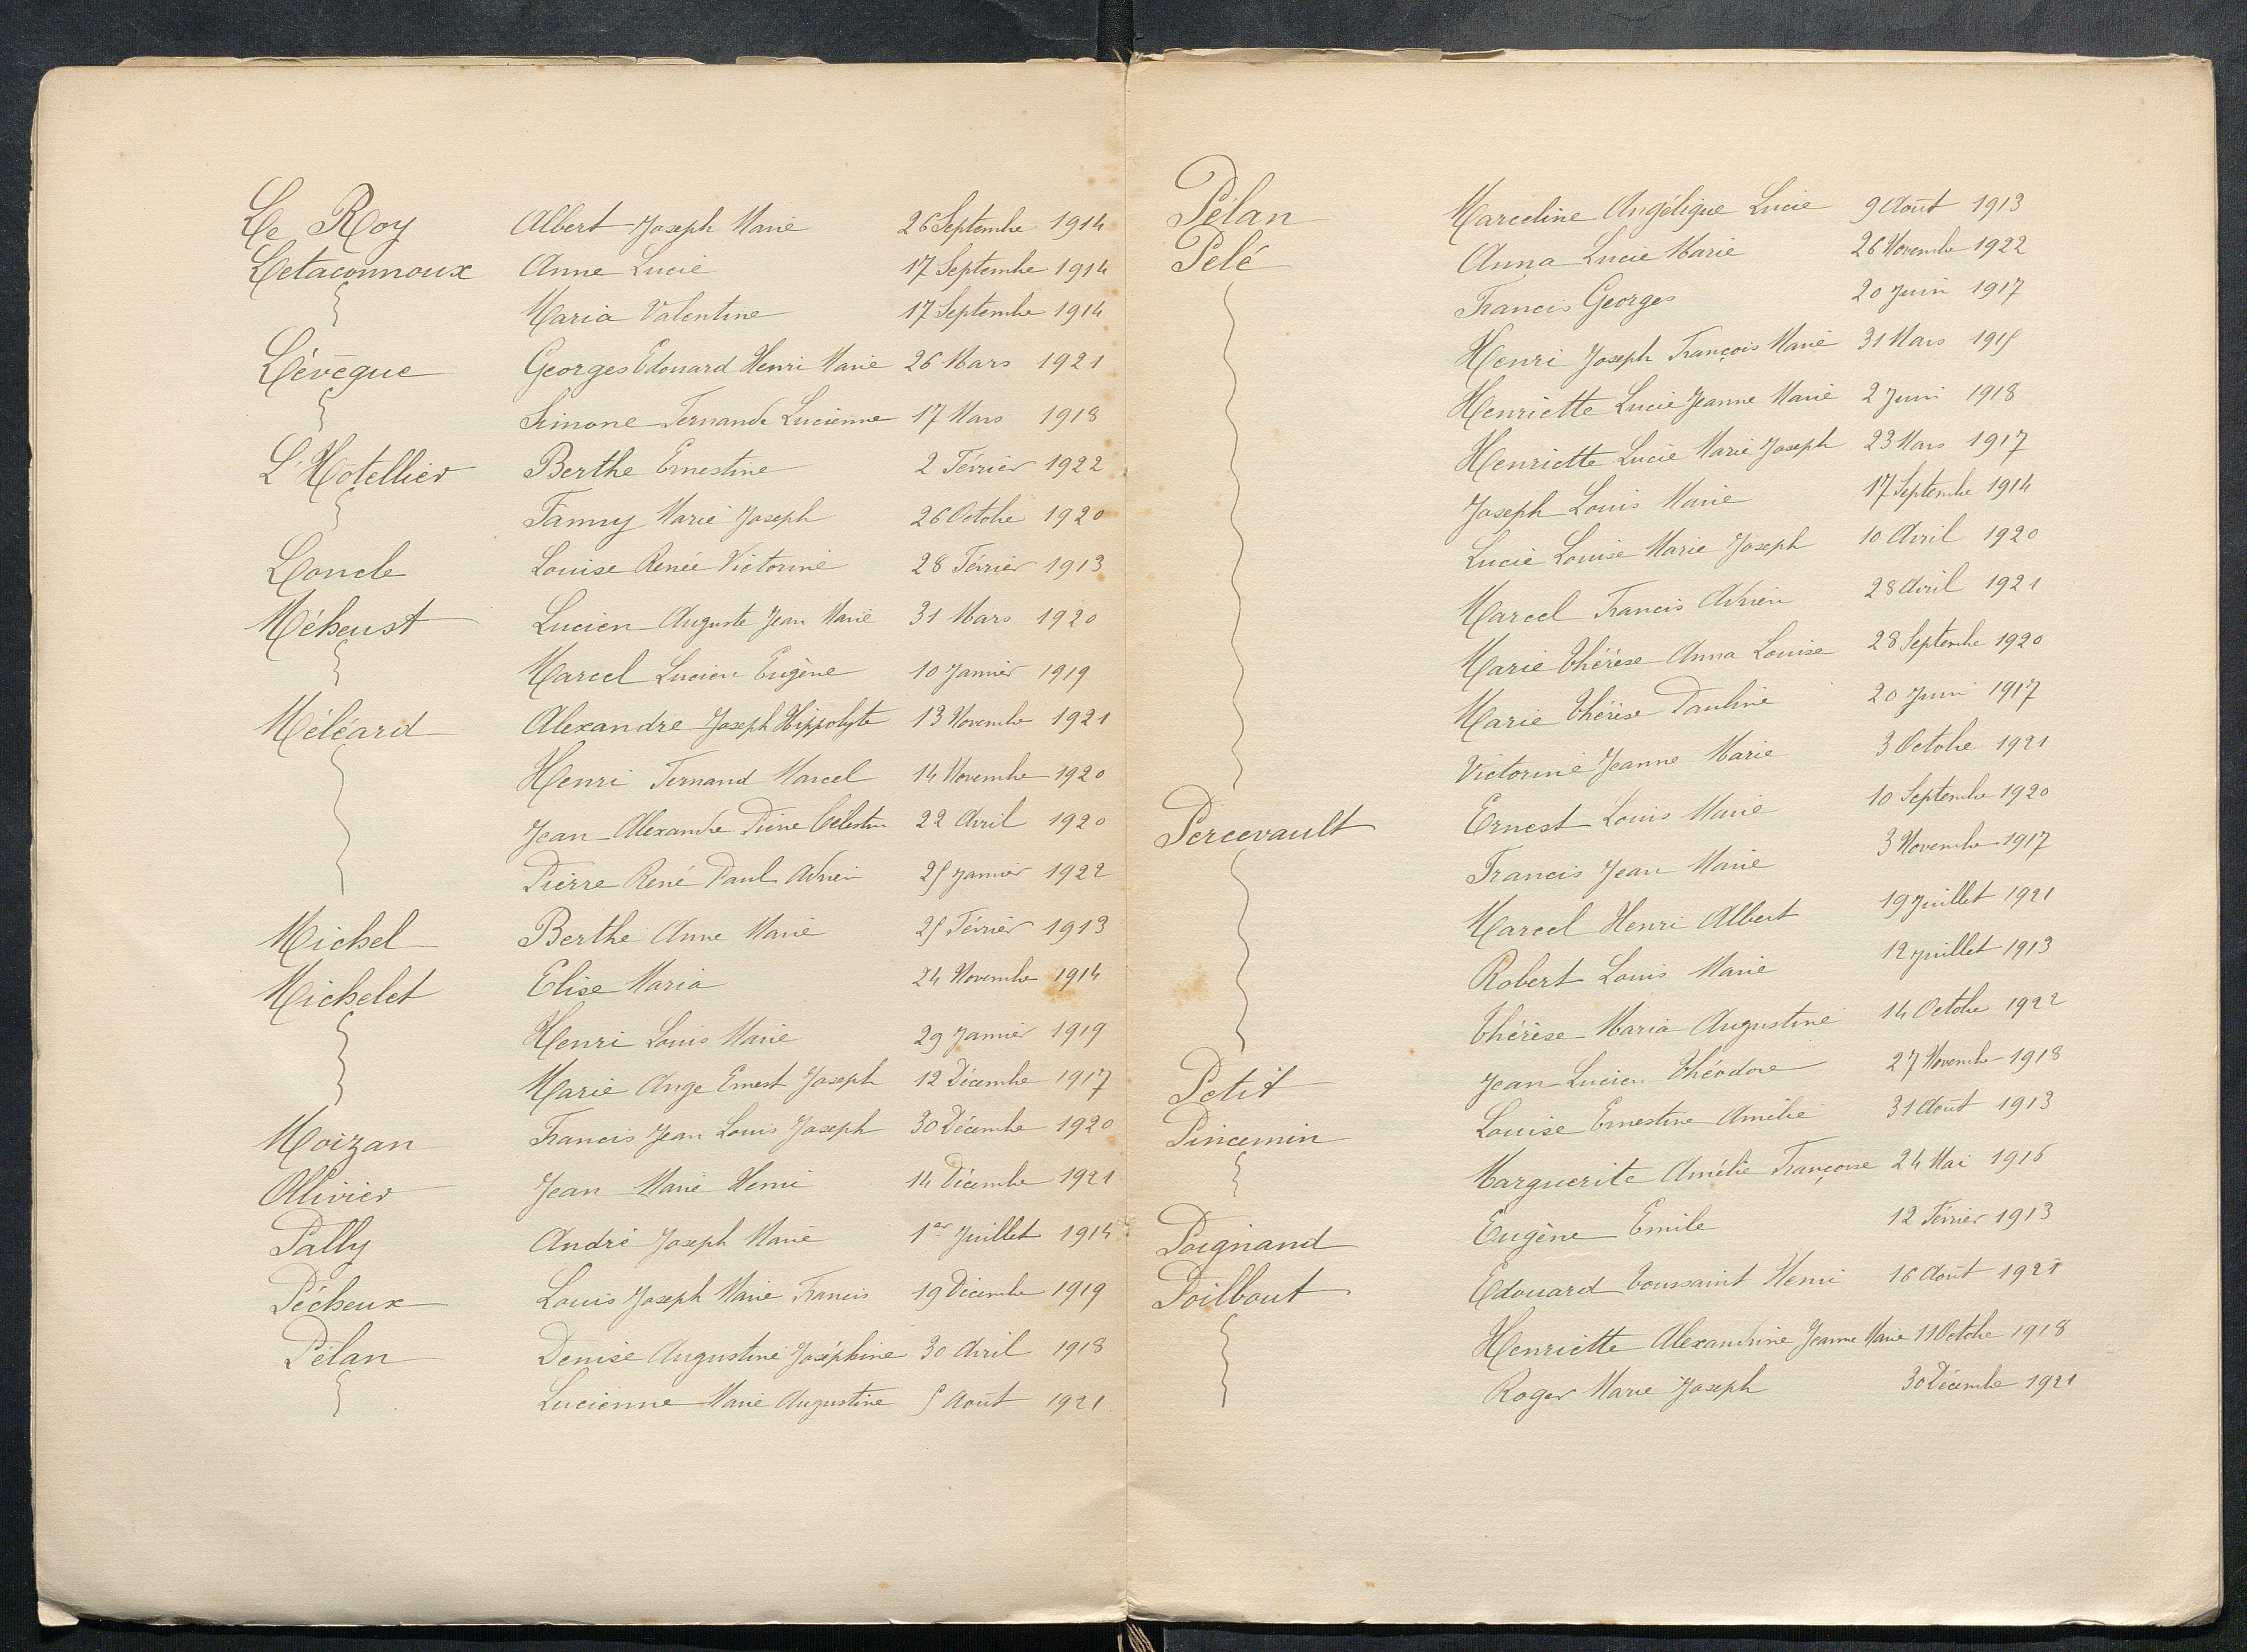 Le Roy Albert Joseph Marie 26 Septembre 1914
Letaconnoux Anne Lucie 17 Septembre 1914
Maria Valentine 17 Septembre 1914
Lévêque Georges Edouard Henri Marie 26 Mars 1921
Simone Fernande Lucienne 17 Mars 1918
L'Hôtellier Berthe Ernestine 2 Février 1922
Fanny Marie Joseph 26 Octobre 1920
Loncle Louise Renée Victorine 28 Février 1913
Méheust Lucien Auguste Jean Marie 31 Mars 1920
Marcel Lucien Eugène 10 Janvier 1919
Méléard Alexandre Joseph Hippolyte 13 Novembre 1921
Henri Fernand Marcel 14 Novembre 1920
Jean Alexandre Pierre Célestin 22 Avril 1920
Pierre René Paul Adrien 25 Janvier 1922
Michel Berthe Anne Marie 25 Février 1913
Michelet Elise Maria 24 Novembre 1914
Henri Louis Marie 29 Janvier 1919
Marie Ange Ernest Joseph 12 Décembre 1917
Moizan Francis Jean Louis Joseph 30 Décembre 1920
Ollivier Jean Marie Henri 14 Décembre 1921
Pally André Joseph Marie 1er Juillet 1914
Pécheux Louis Joseph Marie Francis 19 Décembre 1919
Pélan Denise Augustine Joséphine 30 Avril 1918
Lucienne Marie Augustine 5 Août 1921
Pélan Marceline Angélique Lucie 9 Août 1913
Pelé Anna Lucie Marie 26 Novembre 1922
Francis Georges 20 Juin 1917
Henri Joseph François Marie 31 Mars 1915
Henriette Lucie Jeanne Marie 2 Juin 1918
Henriette Lucie Marie Joseph 23 Mars 1917
Joseph Louis Marie 17 Septembre 1914
Lucie Louise Marie Joseph 10 Avril 1920
Marcel Francis Adrien 28 Avril 1921
Marie Thérèse Anna Louise 28 Septembre 1920
Marie Thérèse Pauline 20 Juin 1917
Victorine Jeanne Marie 3 Octobre 1921
Percevault Ernest Louis Marie 10 Septembre 1920
Francis Jean Marie 3 Novembre 1917
Marcel Henri Albert 19 Juillet 1921
Robert Louis Marie 12 Juillet 1913
Thérèse Maria Augustine 14 Octobre 1922
Petit Jean Lucien Théodore 27 Novembre 1918
Pincemin Louise Ernestine Amélie 31 Août 1913
Marguerite Amélie Françoise 24 Mai 1916
Poignand Eugène Emile 12 Février 1913
Poilbout Edouard Toussaint Henri 16 Août 1921
Henriette Alexandrine Jeanne Marie 11 Octobre 1918
Roger Marie Joseph 30 Décembre 1921